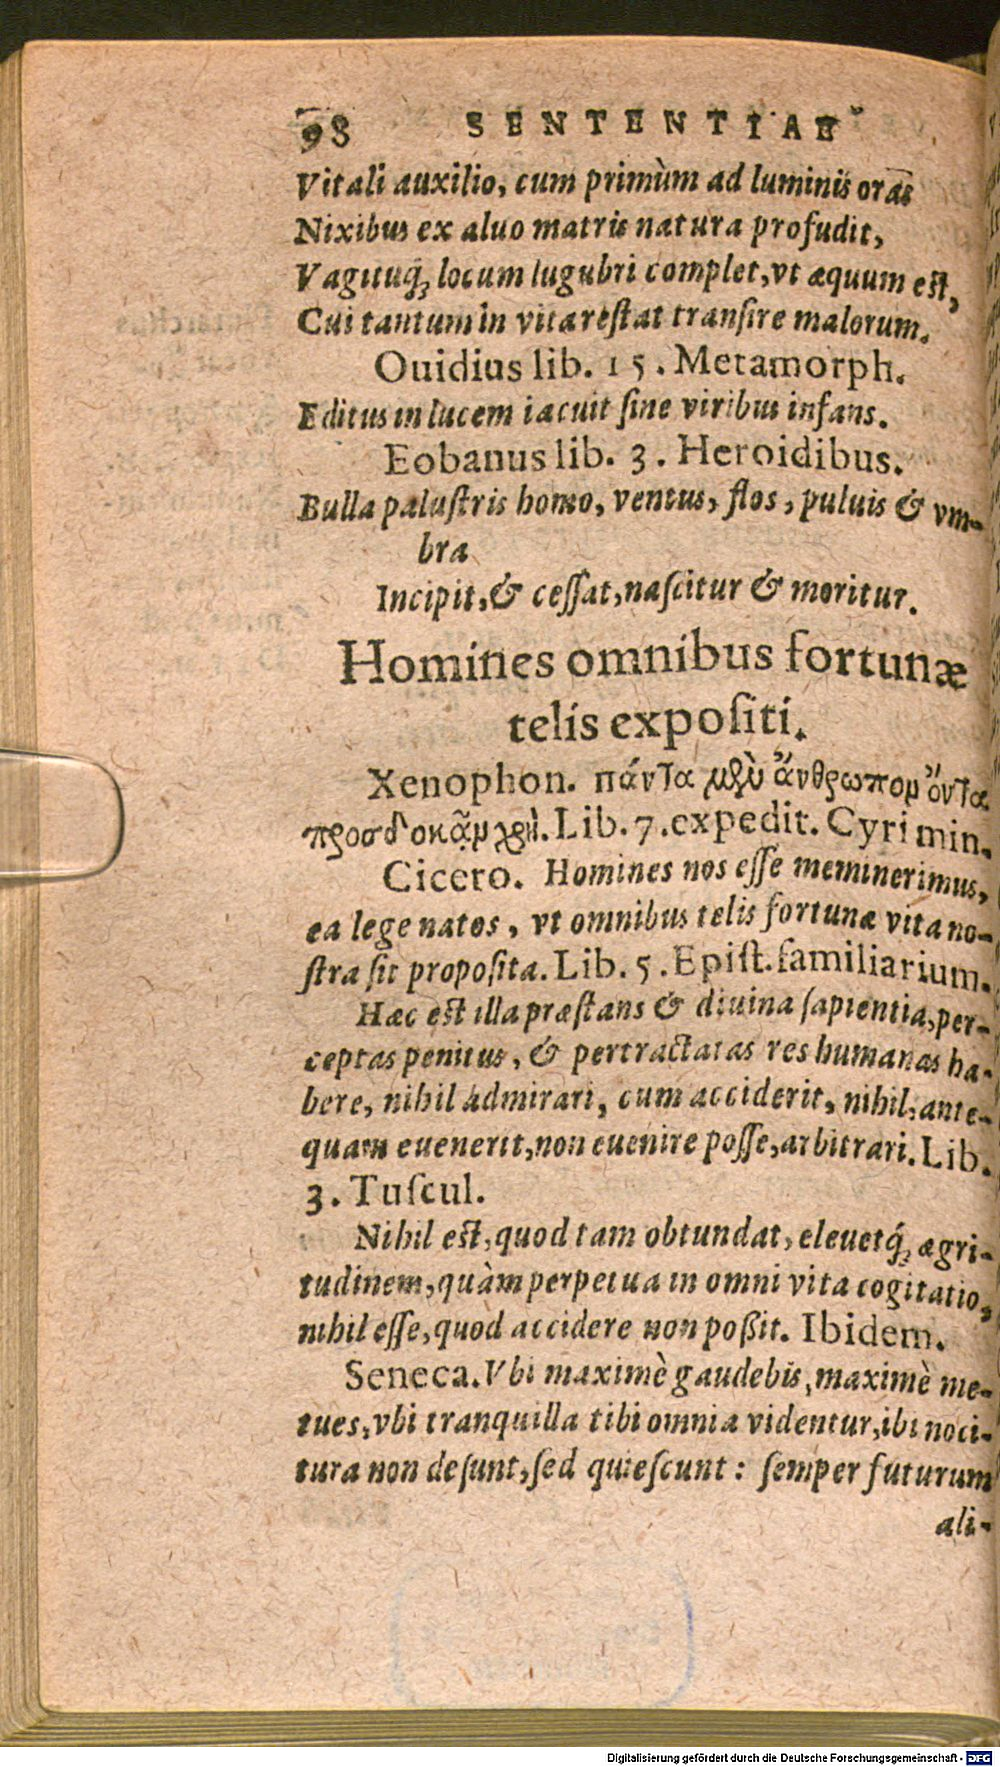 98 SENTENTIAE
Vitali auxilio, cum primùm ad luminis oras
Nixibus ex aluo matris natura profudit,
Vagituq́; locum lugubri complet, vt æquum est,
Cui tantum in vita restat transire malorum.
Ouidius lib. 15. Metamorph.
Editus in lucem iacuit sine viribus infans.
Eobanus lib. 3. Heroidibus.
Bulla palustris homo, ventus, flos, puluis & vm-
bra
Incipit, & cessat, nascitur & moritur.
Homines omnibus fortunæ
telis expositi.
Xenophon. πάντα μὲν ἄνθρωπον ὄντα
προσδοκᾷν χρή. Lib. 7. expedit. Cyri min.
Cicero. Homines nos esse meminerimus,
ea lege natos, vt omnibus telis fortunæ vita no-
stra sit proposita. Lib. 5. Epist. familiarium.
Hæc est illa præstans & diuina sapientia, per-
ceptas penitus, & pertractatas res humanas ha-
bere, nihil admirari, cum acciderit, nihil, ante-
quam euenerit, non euenire posse, arbitrari. Lib.
3. Tuscul.
Nihil est, quod tam obtundat, eleuetq́; ægri-
tudinem, quàm perpetua in omni vita cogitatio,
nihil esse, quod accidere non poßit. Ibidem.
Seneca. Vbi maximè gaudebis, maximè me-
tues, vbi tranquilla tibi omnia videntur, ibi noci-
tura non desunt, sed quiescunt: semper futurum
ali-
Digitalisierung gefördert durch die Deutsche Forschungsgemeinschaft - DFG